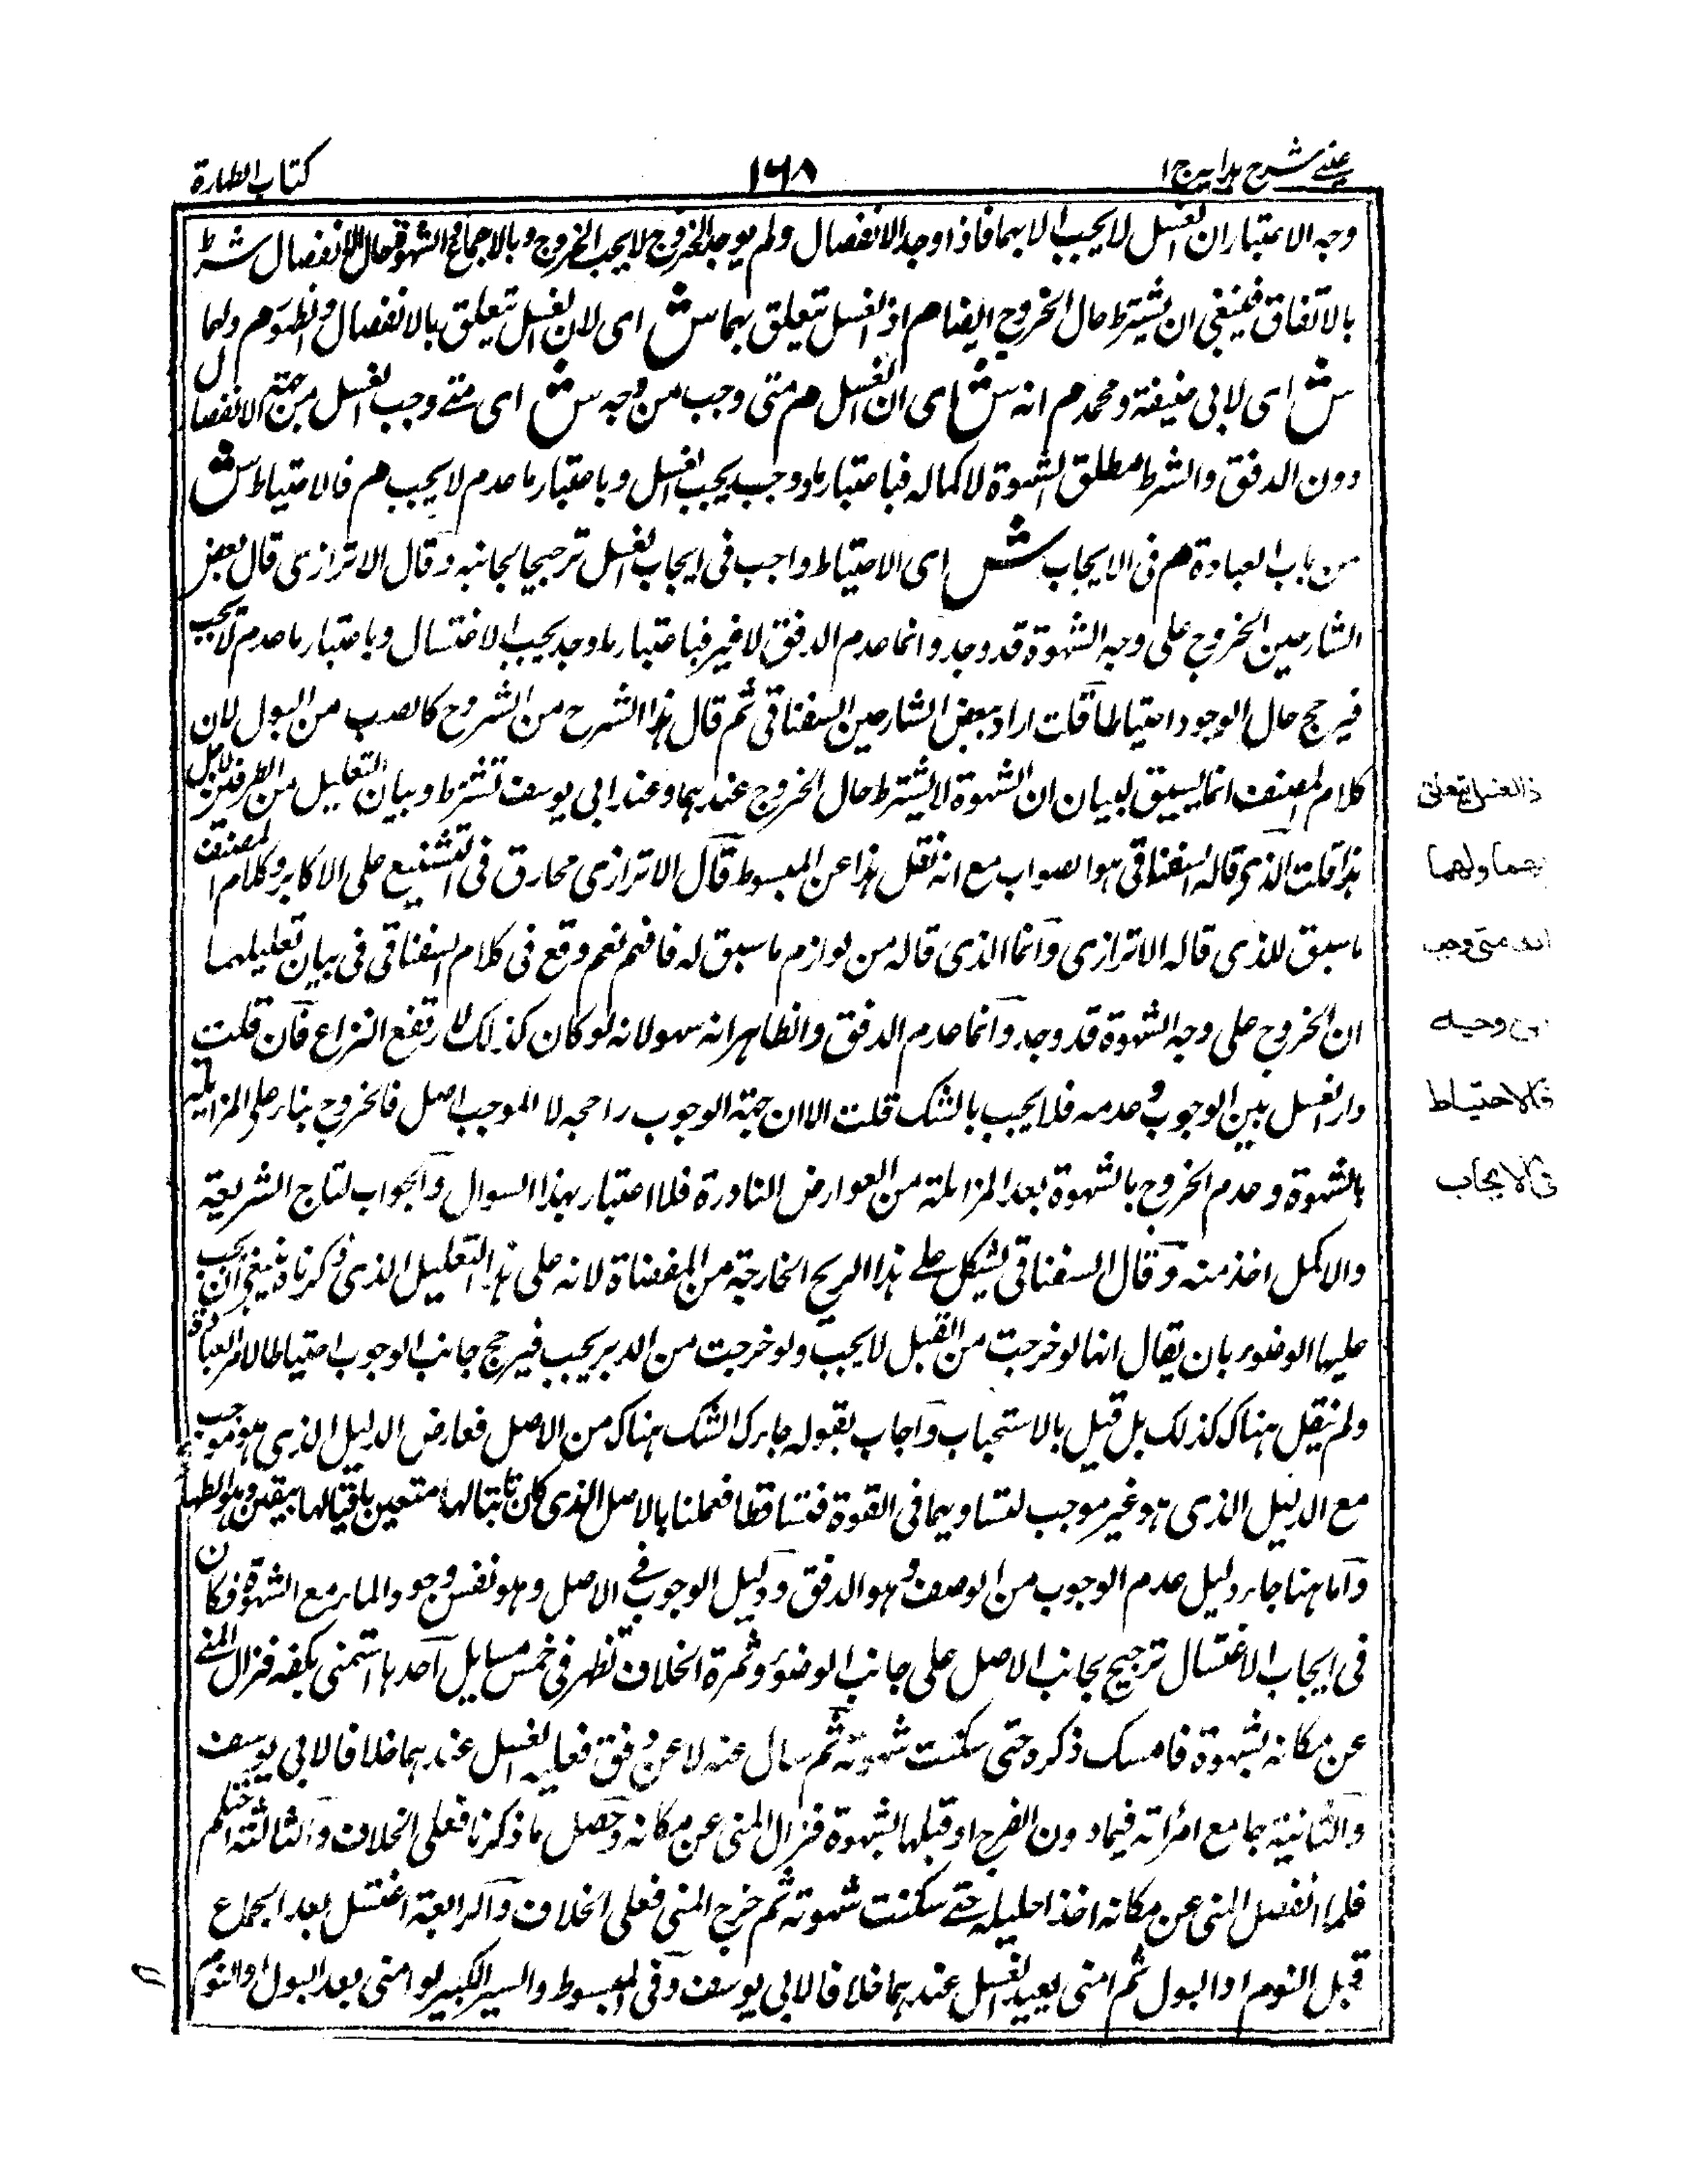 عینی شرح ہدایہ ج ۱
۱۶۸
کتاب الطہارة
وجه الاعتبار ان الغسل لا يجب الا بهما فاذا وجد الانفصال ولم يوجد الخروج لا يجب الخروج وبالاجماع الشهوة حال الانفصال شرط
بالاتفاق فينبغي ان يشترط حال الخروج ايضا م اذ الغسل يتعلق بهما ش اى لان الغسل يتعلق بالانفصال والظهور م ولهما
ش اى لابي حنيفة ومحمد م انه ش اى ان الغسل م متى وجب من وجه ش اى متى وجب الغسل من جهة الانفصال
دون الدفق والشرط مطلق الشهوة لا كماله فباعتبار ما وجب يجب الغسل وباعتبار ما عدم لا يجب م فالاحتياط ش
من باب العبادة م فى الايجاب ش اى الاحتياط واجب فى ايجاب الغسل ترجيحا لجانبه وقال الاترازى قال بعض
الشارحين الخروج على وجه الشهوة قد وجد وانما عدم الدفق لا غير فباعتبار ما وجد يجب الاغتسال وباعتبار ما عدم لا يجب
فيرجح حال الوجود احتياطا قلت اراد ببعض الشارحين السغناقى ثم قال هذا الشرح من الشروح كالصب من البول لان
كلام المصنف انما يسيق لبيان ان الشهوة لا يشترط حال الخروج عندهما وعند ابى يوسف تشترط وبيان التعليل من الطرفين لاجل
هذا قلت الذى قاله السغناقى هو الصواب مع انه نقل هذا عن المبسوط قال الاترازى محارق فى التشنيع على الاكابر وكلام المصنف
ما سبق للذى قاله الاترازى وانما الذى قاله من لوازم ما سبق له فافهم نعم وقع فى كلام السغناقى فى بيان تعليلهما
ان الخروج على وجه الشهوة قد وجد وانما عدم الدفق والظاهر انه سهو لانه لو كان كذلك لارتفع النزاع فان قلت
دار الغسل بين الوجوب وعدمه فلا يجب بالشك قلت الا ان جهة الوجوب راجحه لا الموجب اصل فالخروج بناء على المزايلة
بالشهوة وعدم الخروج بالشهوة بعد المزايلة من العوارض النادرة فلا اعتبار بهذا السوال والجواب لتاج الشريعة
والاكمل اخذ منه وقال السغناقى يشكل على هذا الريح الخارجة من المفضاة لانه على هذا التعليل الذى ذكرنا ينبغى ان يجب
عليها الوضوء بان يقال انها لو خرجت من القبل لا يجب ولو خرجت من الدبر يجب فيرجح جانب الوجوب احتياطا لامر العبادة
ولم يقل هناك كذلك بل قيل بالاستحباب واجاب بقوله جاء الشك هناك من الاصل فعارض الدليل الذى هو موجب
مع الدليل الذى هو غير موجب لتساويهما فى القوة فتساقطا فعملنا بالاصل الذى كان ثابتا لها بيقين وهو الطهارة
واما هنا جاء دليل عدم الوجوب من الوصف وهو الدفق ودليل الوجوب فى الاصل وهو نفس وجود الماء مع الشهوة فكان
فى ايجاب الاغتسال ترجيح بجانب الاصل على جانب الوضوء وثمرة الخلاف تظهر فى خمس مسايل احدها استمنى بكفه فنزال المنى
عن مكانه بشهوة فامسك ذكره حتى سكنت شهوته ثم سال عنه لا عن دفق فعليه الغسل عندهما خلافا لابى يوسف
والثانية جامع امرأته فيما دون الفرج او قبلها بشهوة فنزال المنى عن مكانه وحصل ما ذكرنا فعلى الخلاف والثالثة احتلم
فلما انفصل المنى عن مكانه اخذ احليله حتى سكنت شهوته ثم خرج المنى فعلى الخلاف والرابعة اغتسل بعد الجماع
قبل النوم او البول ثم امنى يعيد الغسل عندهما خلافا لابى يوسف وفى المبسوط والسير الكبير لو امنى بعد البول والنوم
ذالغسل يتعلق
بهما ولهما
انه متى وجب
من وجه
فالاحتياط
فى الايجاب